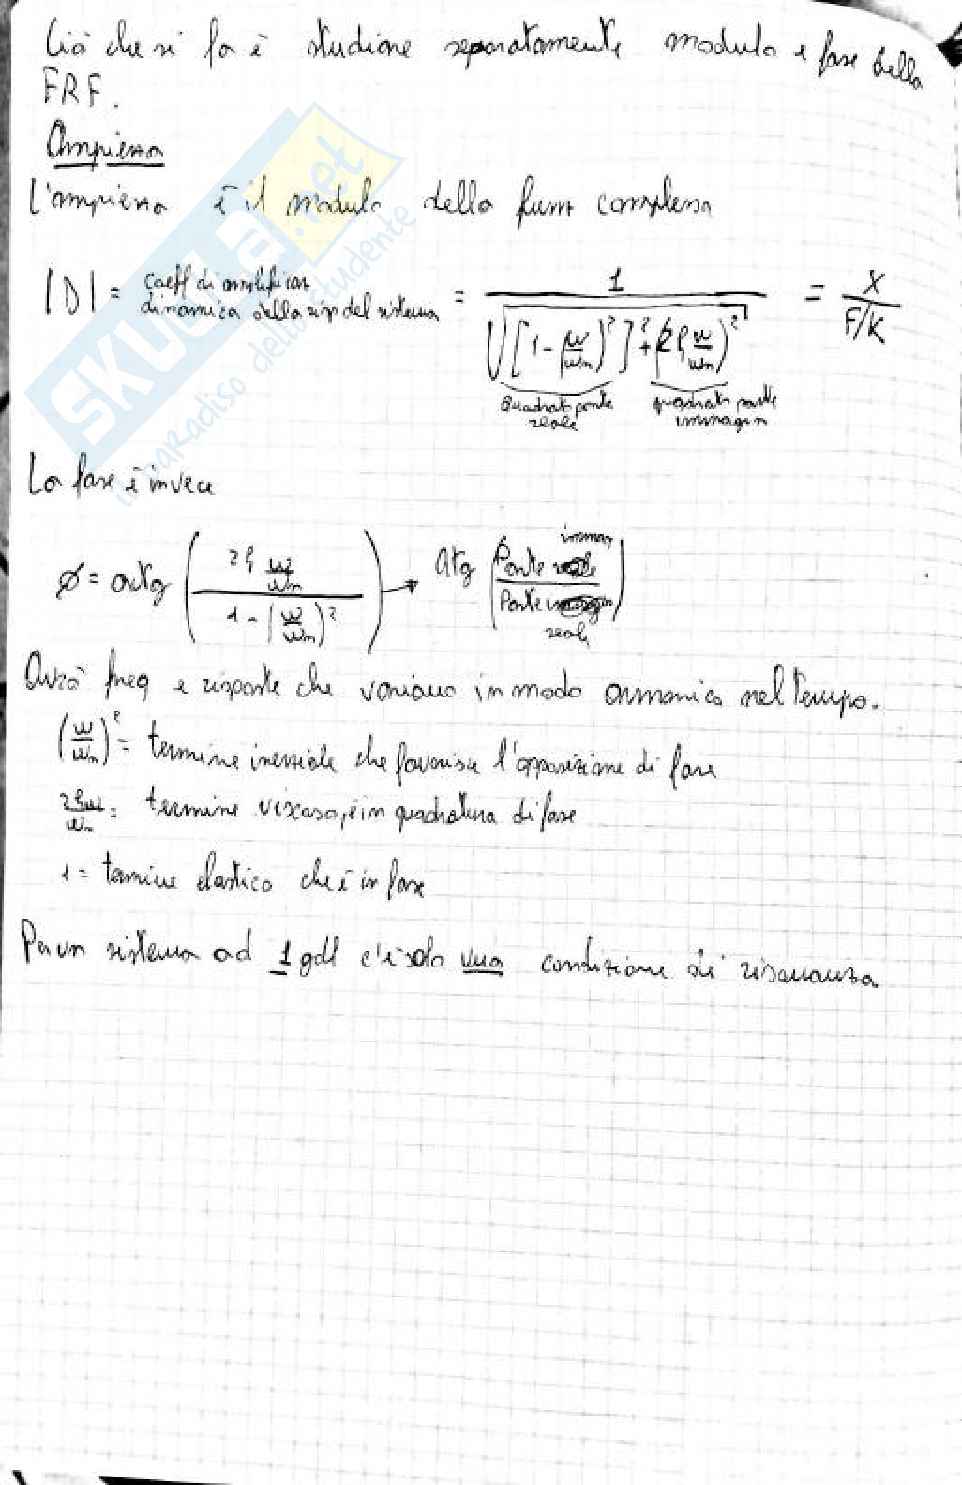 Ciò che si fa è studiare separatamente modulo e fase della
FRF.
Ampiezza
L'ampiezza è il modulo della funz complessa
|D| = coeff di amplificaz dinamica della risp del sistema = 1 / √([1 - (ω/ωn)²]² + (2ξ ω/ωn)²) = X / F/K
quadrato parte reale
quadrato parte immagin
La fase è invece
ø = artg (2ξ ω/ωn / 1 - (ω/ωn)²) → atg (Parte immag / Parte reale)
Avrò freq e risposte che variano in modo armonico nel tempo.
(ω/ωn)² = termine inerziale che favorisce l'opposizione di fase
2ξω/ωn = termine viscoso, è in quadratura di fase
1 = termine elastico che è in fase
Per un sistema ad 1 gdl c'è solo una condizione di risonanza.
SKUOLA.net
il paradiso dello studente